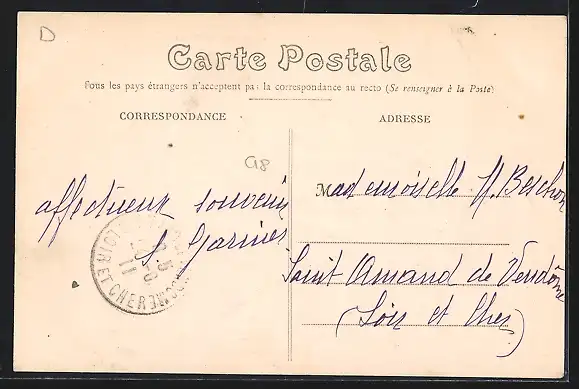 D
Carte Postale
Tous les pays étrangers n'acceptent pas la correspondance au recto (Se renseigner à la Poste)
CORRESPONDANCE
ADRESSE
G8
affectueux souvenir
Mademoiselle
Saint Amand de Vendôme
(Loir et Cher)
LOIR ET CHER